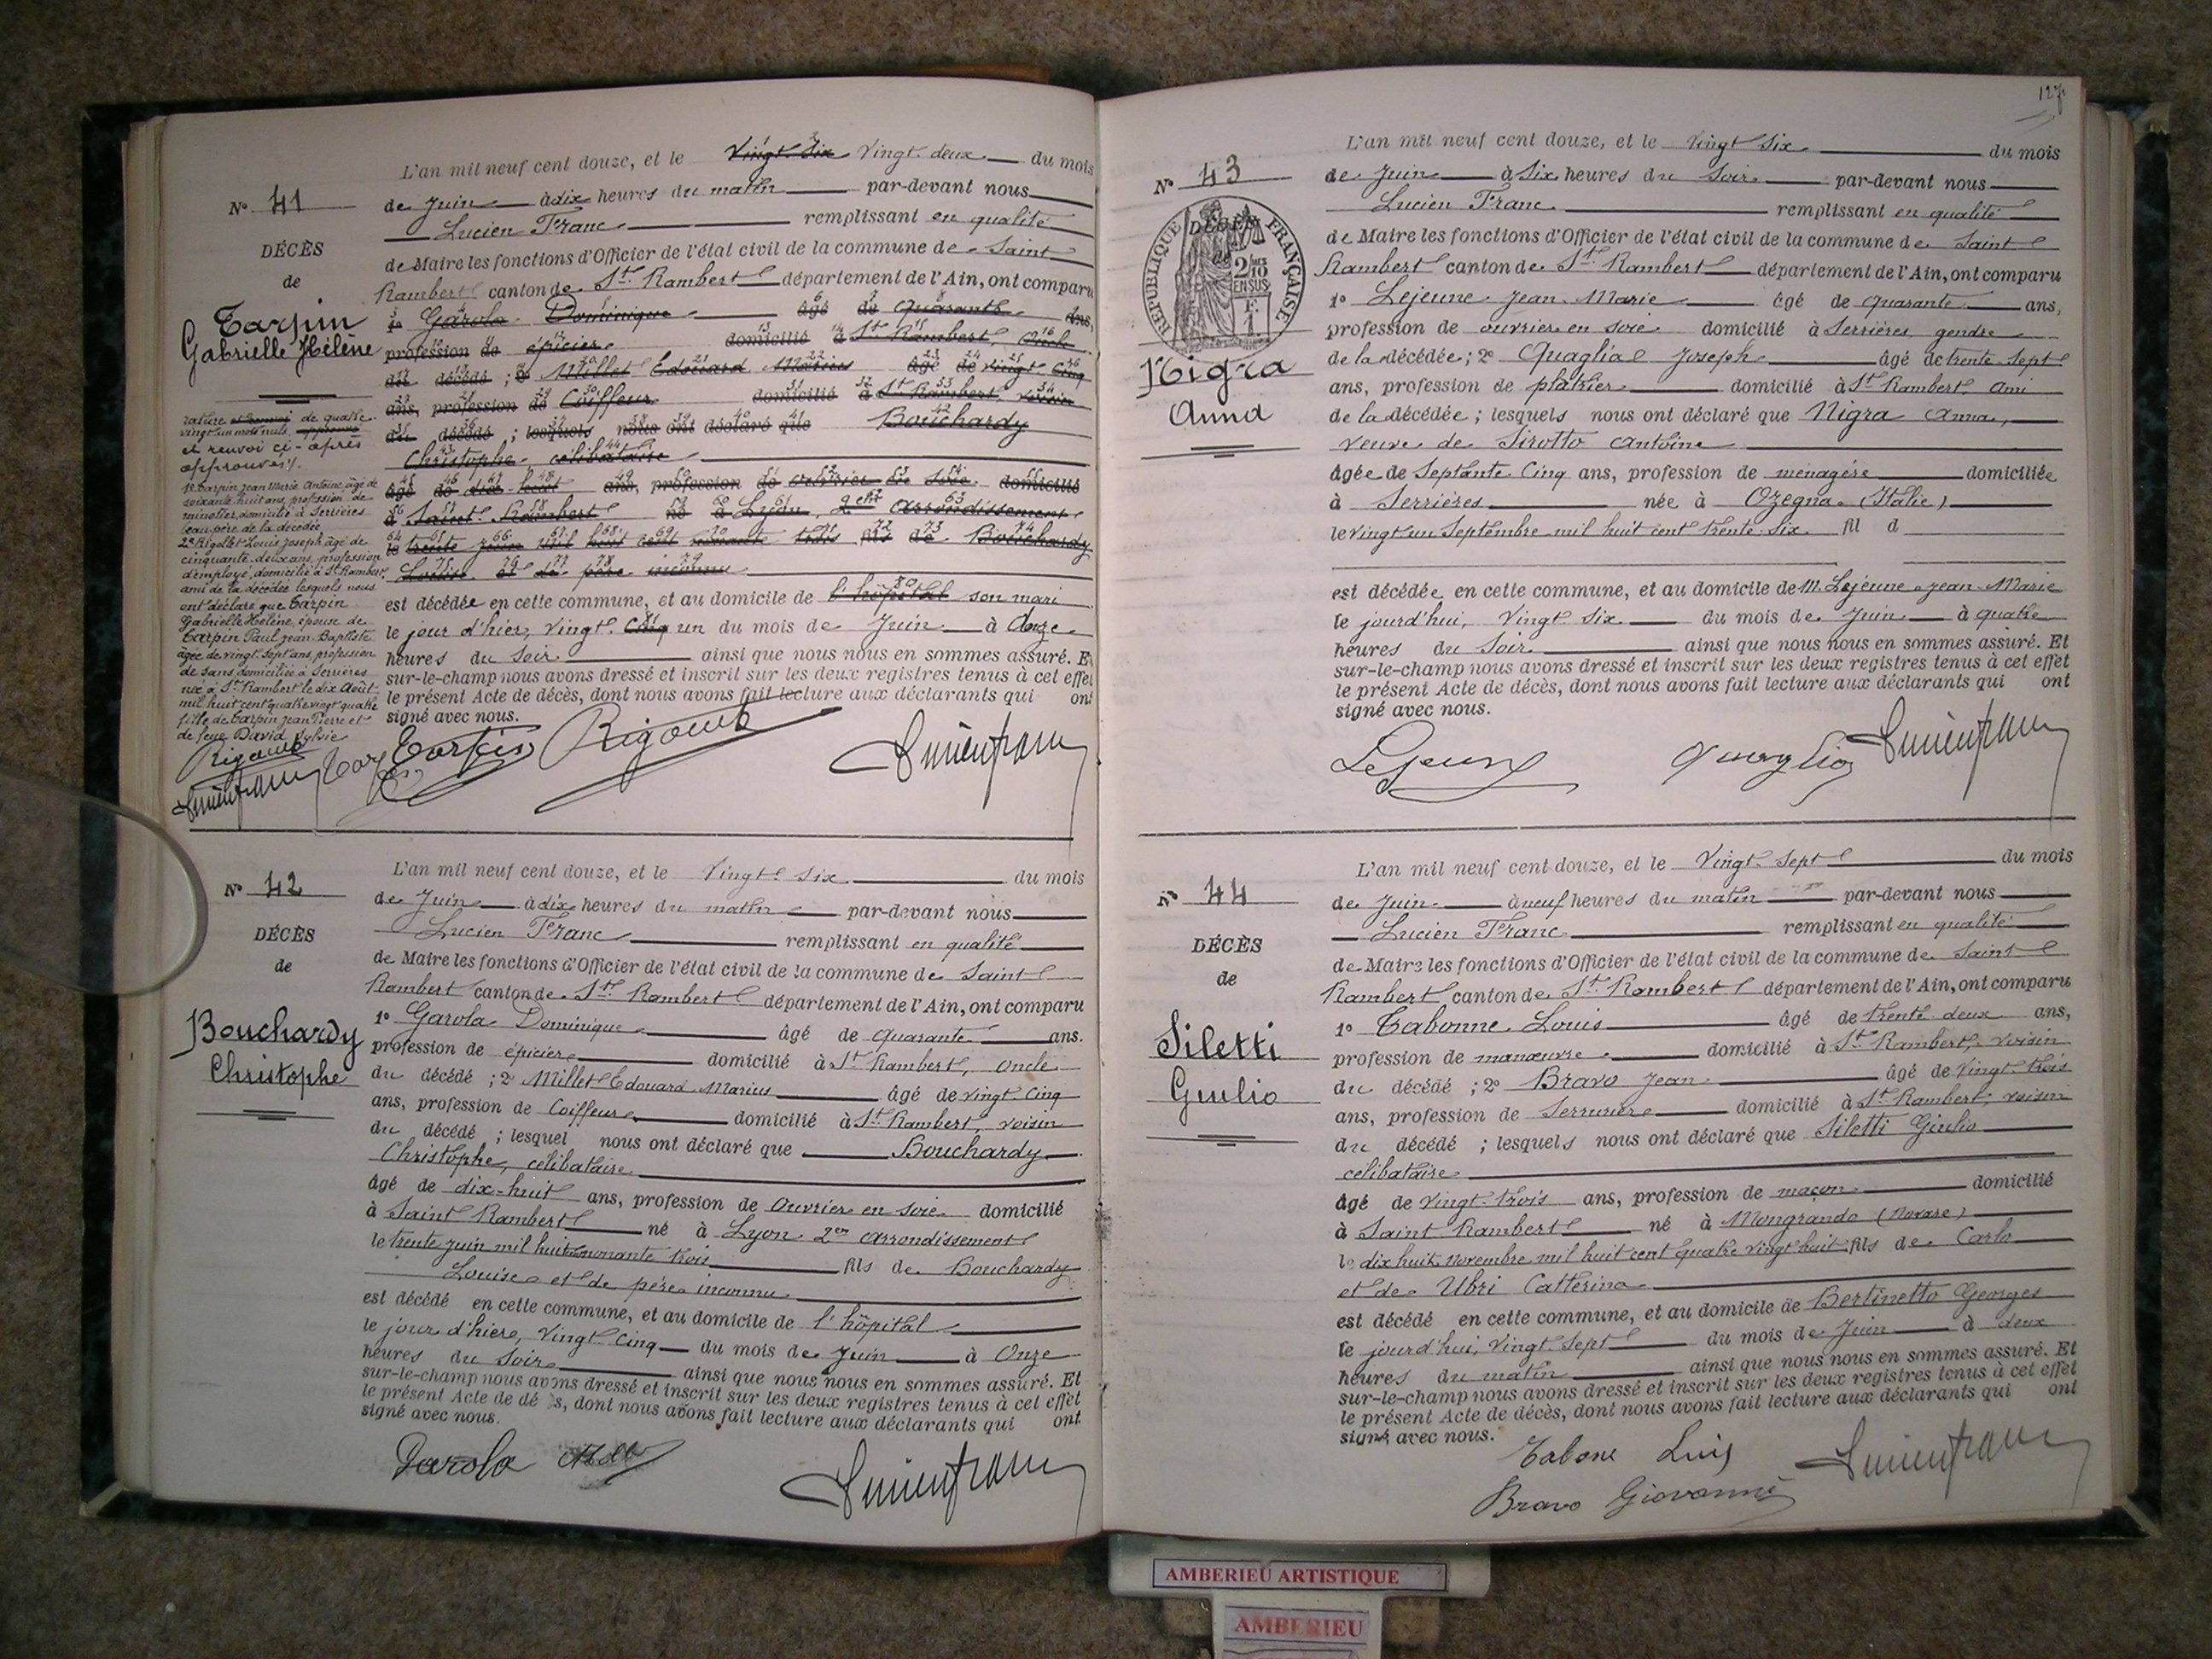 N° 41
DÉCÈS
de
Tarpin
Gabrielle Hélène
rature et renvoi de quatre
vingt un mots nuls. approuvé
et renvoi ci-après
approuvés.
1° Tarpin Jean Marie Antoine, âgé de
soixante huit ans, profession de
minotier, domicilié à Serrières
beau père de la décédée
2° Rigollet Louis Joseph âgé de
cinquante deux ans, profession
d'employé, domicilié à St Rambert,
ami de la décédée lesquels nous
ont déclaré que Tarpin
Gabrielle Hélène, épouse de
Tarpin Paul Jean Baptiste
âgée de vingt sept ans, profession
de sans, domiciliée à Serrières
née à St Rambert le dix Août
mil huit cent quatre vingt quatre
fille de Tarpin Jean Pierre et
de feue David Sylvie
L'an mil neuf cent douze, et le Vingt Six Vingt deux du mois
de Juin à dix heures du matin par-devant nous
Lucien Franc remplissant en qualité
de Maire les fonctions d'Officier de l'état civil de la commune de Saint
Rambert canton de St Rambert département de l'Ain, ont comparu
1° Garola Dominique âgé de Quarante ans,
profession de épicier domicilié à St Rambert, Oncle
du décédé ; 2° Millet Edouard Marius âgé de vingt cinq
ans, profession de Coiffeur domicilié à St Rambert, voisin
du décédé ; lesquels nous ont déclaré que Bouchardy
Christophe, célibataire
âgé de dix-huit ans, profession de ouvrier en soie domicilié
à Saint Rambert né à Lyon, 2em arrondissement
le trente juin mil huit cent nonante trois fils de Bouchardy
Louise et de père inconnu
est décédée en cette commune, et au domicile de l'hôpital son mari
le jour d'hier, vingt cinq un du mois de Juin à Onze
heures du Soir ainsi que nous nous en sommes assuré. Et
sur-le-champ nous avons dressé et inscrit sur les deux registres tenus à cet effet
le présent Acte de décès, dont nous avons fait lecture aux déclarants qui ont
signé avec nous.
Tarpin
N° 42
DÉCÈS
de
Bouchardy
Christophe
L'an mil neuf cent douze, et le Vingt Six du mois
de Juin à dix heures du matin par-devant nous
Lucien Franc remplissant en qualité
de Maire les fonctions d'Officier de l'état civil de la commune de Saint
Rambert canton de St Rambert département de l'Ain, ont comparu
1° Garola Dominique âgé de Quarante ans.
profession de épicier domicilié à St Rambert, Oncle
du décédé ; 2° Millet Edouard Marius âgé de vingt cinq
ans, profession de Coiffeur domicilié à St Rambert, voisin
du décédé ; lesquel nous ont déclaré que Bouchardy
Christophe, célibataire
âgé de dix-huit ans, profession de Ouvrier en soie domicilié
à Saint Rambert né à Lyon 2em arrondissement
le trente juin mil huit cent nonante trois fils de Bouchardy
Louise et de père inconnu
est décédé en cette commune, et au domicile de l'hôpital
le jour d'hier, vingt cinq du mois de Juin à Onze
heures du Soir ainsi que nous nous en sommes assuré. Et
sur-le-champ nous avons dressé et inscrit sur les deux registres tenus à cet effet
le présent Acte de dé s, dont nous avons fait lecture aux déclarants qui ont
signé avec nous.
Garola
127
N° 43
DÉCÈS
RÉPUBLIQUE FRANÇAISE
2/10
EN SUS
Nigra
Anna
L'an mil neuf cent douze, et le Vingt Six du mois
de Juin à Six heures du Soir par-devant nous
Lucien Franc remplissant en qualité
de Maire les fonctions d'Officier de l'état civil de la commune de Saint
Rambert canton de St Rambert département de l'Ain, ont comparu
1° Lejeune Jean Marie âgé de quarante ans,
profession de ouvrier en soie domicilié à Serrières gendre
de la décédée ; 2° Quaglia Joseph âgé de trente sept
ans, profession de platrier domicilié à St Rambert, ami
de la décédée ; lesquels nous ont déclaré que Nigra Anna,
veuve de Sirotto Antoine
âgée de Septante Cinq ans, profession de ménagère domiciliée
à Serrières née à Ozegna (Italie)
le vingt un Septembre mil huit cent trente six fil d
est décédée en cette commune, et au domicile de M. Lejeune Jean Marie
le jourd'hui, Vingt Six du mois de Juin à quatre
heures du Soir ainsi que nous nous en sommes assuré. Et
sur-le-champ nous avons dressé et inscrit sur les deux registres tenus à cet effet
le présent Acte de décès, dont nous avons fait lecture aux déclarants qui ont
signé avec nous.
Lejeune Quaglia
N° 44
DÉCÈS
de
Siletti
Giulio
L'an mil neuf cent douze, et le Vingt Sept du mois
de Juin à neuf heures du matin par-devant nous
Lucien Franc remplissant en qualité
de Maire les fonctions d'Officier de l'état civil de la commune de Saint
Rambert canton de St Rambert département de l'Ain, ont comparu
1° Tabonne Louis âgé de trente deux ans,
profession de manœuvre domicilié à St Rambert, voisin
du décédé ; 2° Bravo Jean âgé de Vingt trois
ans, profession de Serrurier domicilié à St Rambert, voisin
du décédé ; lesquels nous ont déclaré que Siletti Giulio
celibataire
âgé de vingt-trois ans, profession de maçon domicilié
à Saint Rambert né à Mongrando (Novare)
le dix huit Novembre mil huit cent quatre vingt huit fils de Carlo
et de Ubri Catterina
est décédé en cette commune, et au domicile de Bertinetto Georges
le jourd'hui, Vingt Sept du mois de Juin à deux
heures du matin ainsi que nous nous en sommes assuré. Et
sur-le-champ nous avons dressé et inscrit sur les deux registres tenus à cet effet
le présent Acte de décès, dont nous avons fait lecture aux déclarants qui ont
signé avec nous.
Tabone Luis
Bravo Giovanni
AMBERIEU ARTISTIQUE
AMBERIEU